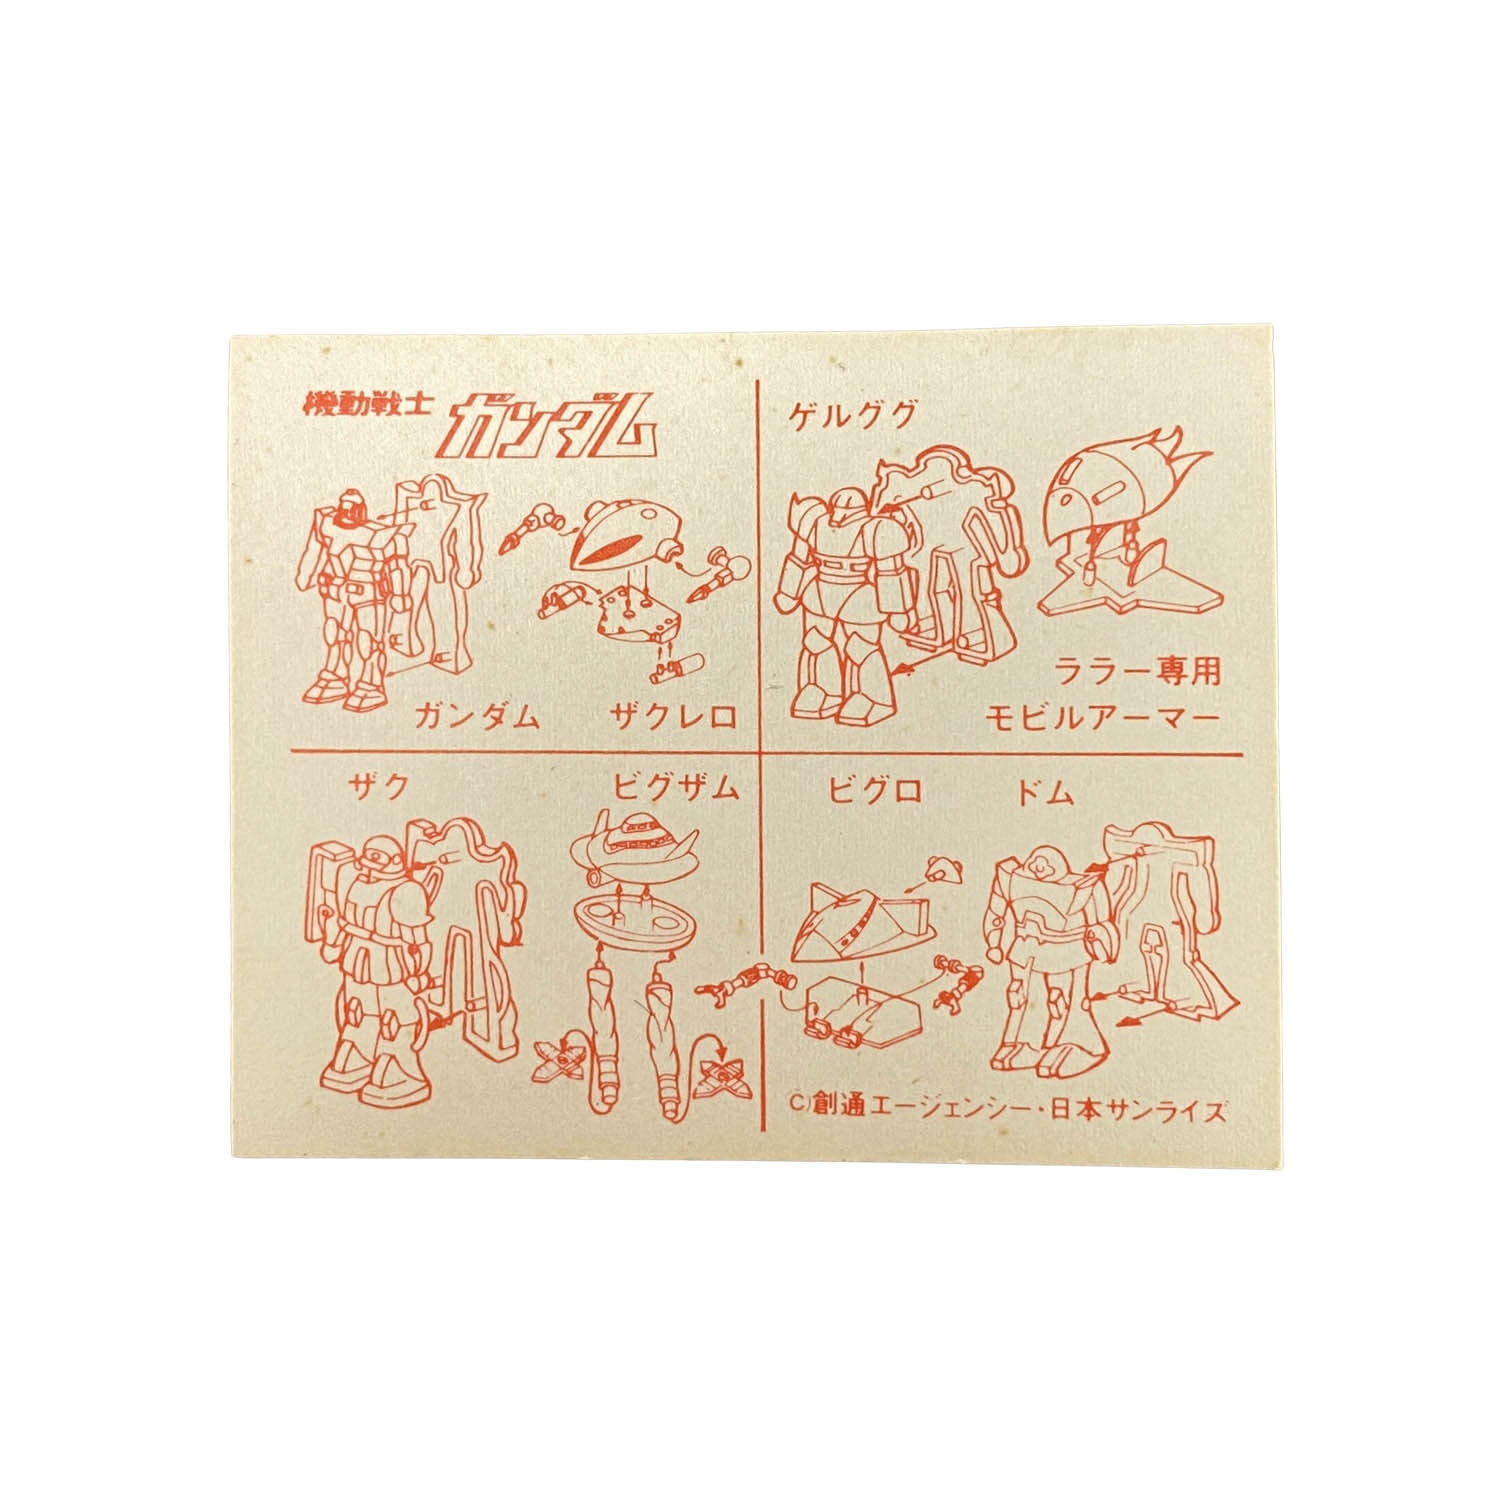 機動戦士 ガンダム
ガンダム ザクレロ
ゲルググ
ララー専用
モビルアーマー
ザク ビグザム
ビグロ ドム
C)創通エージェンシー・日本サンライズ